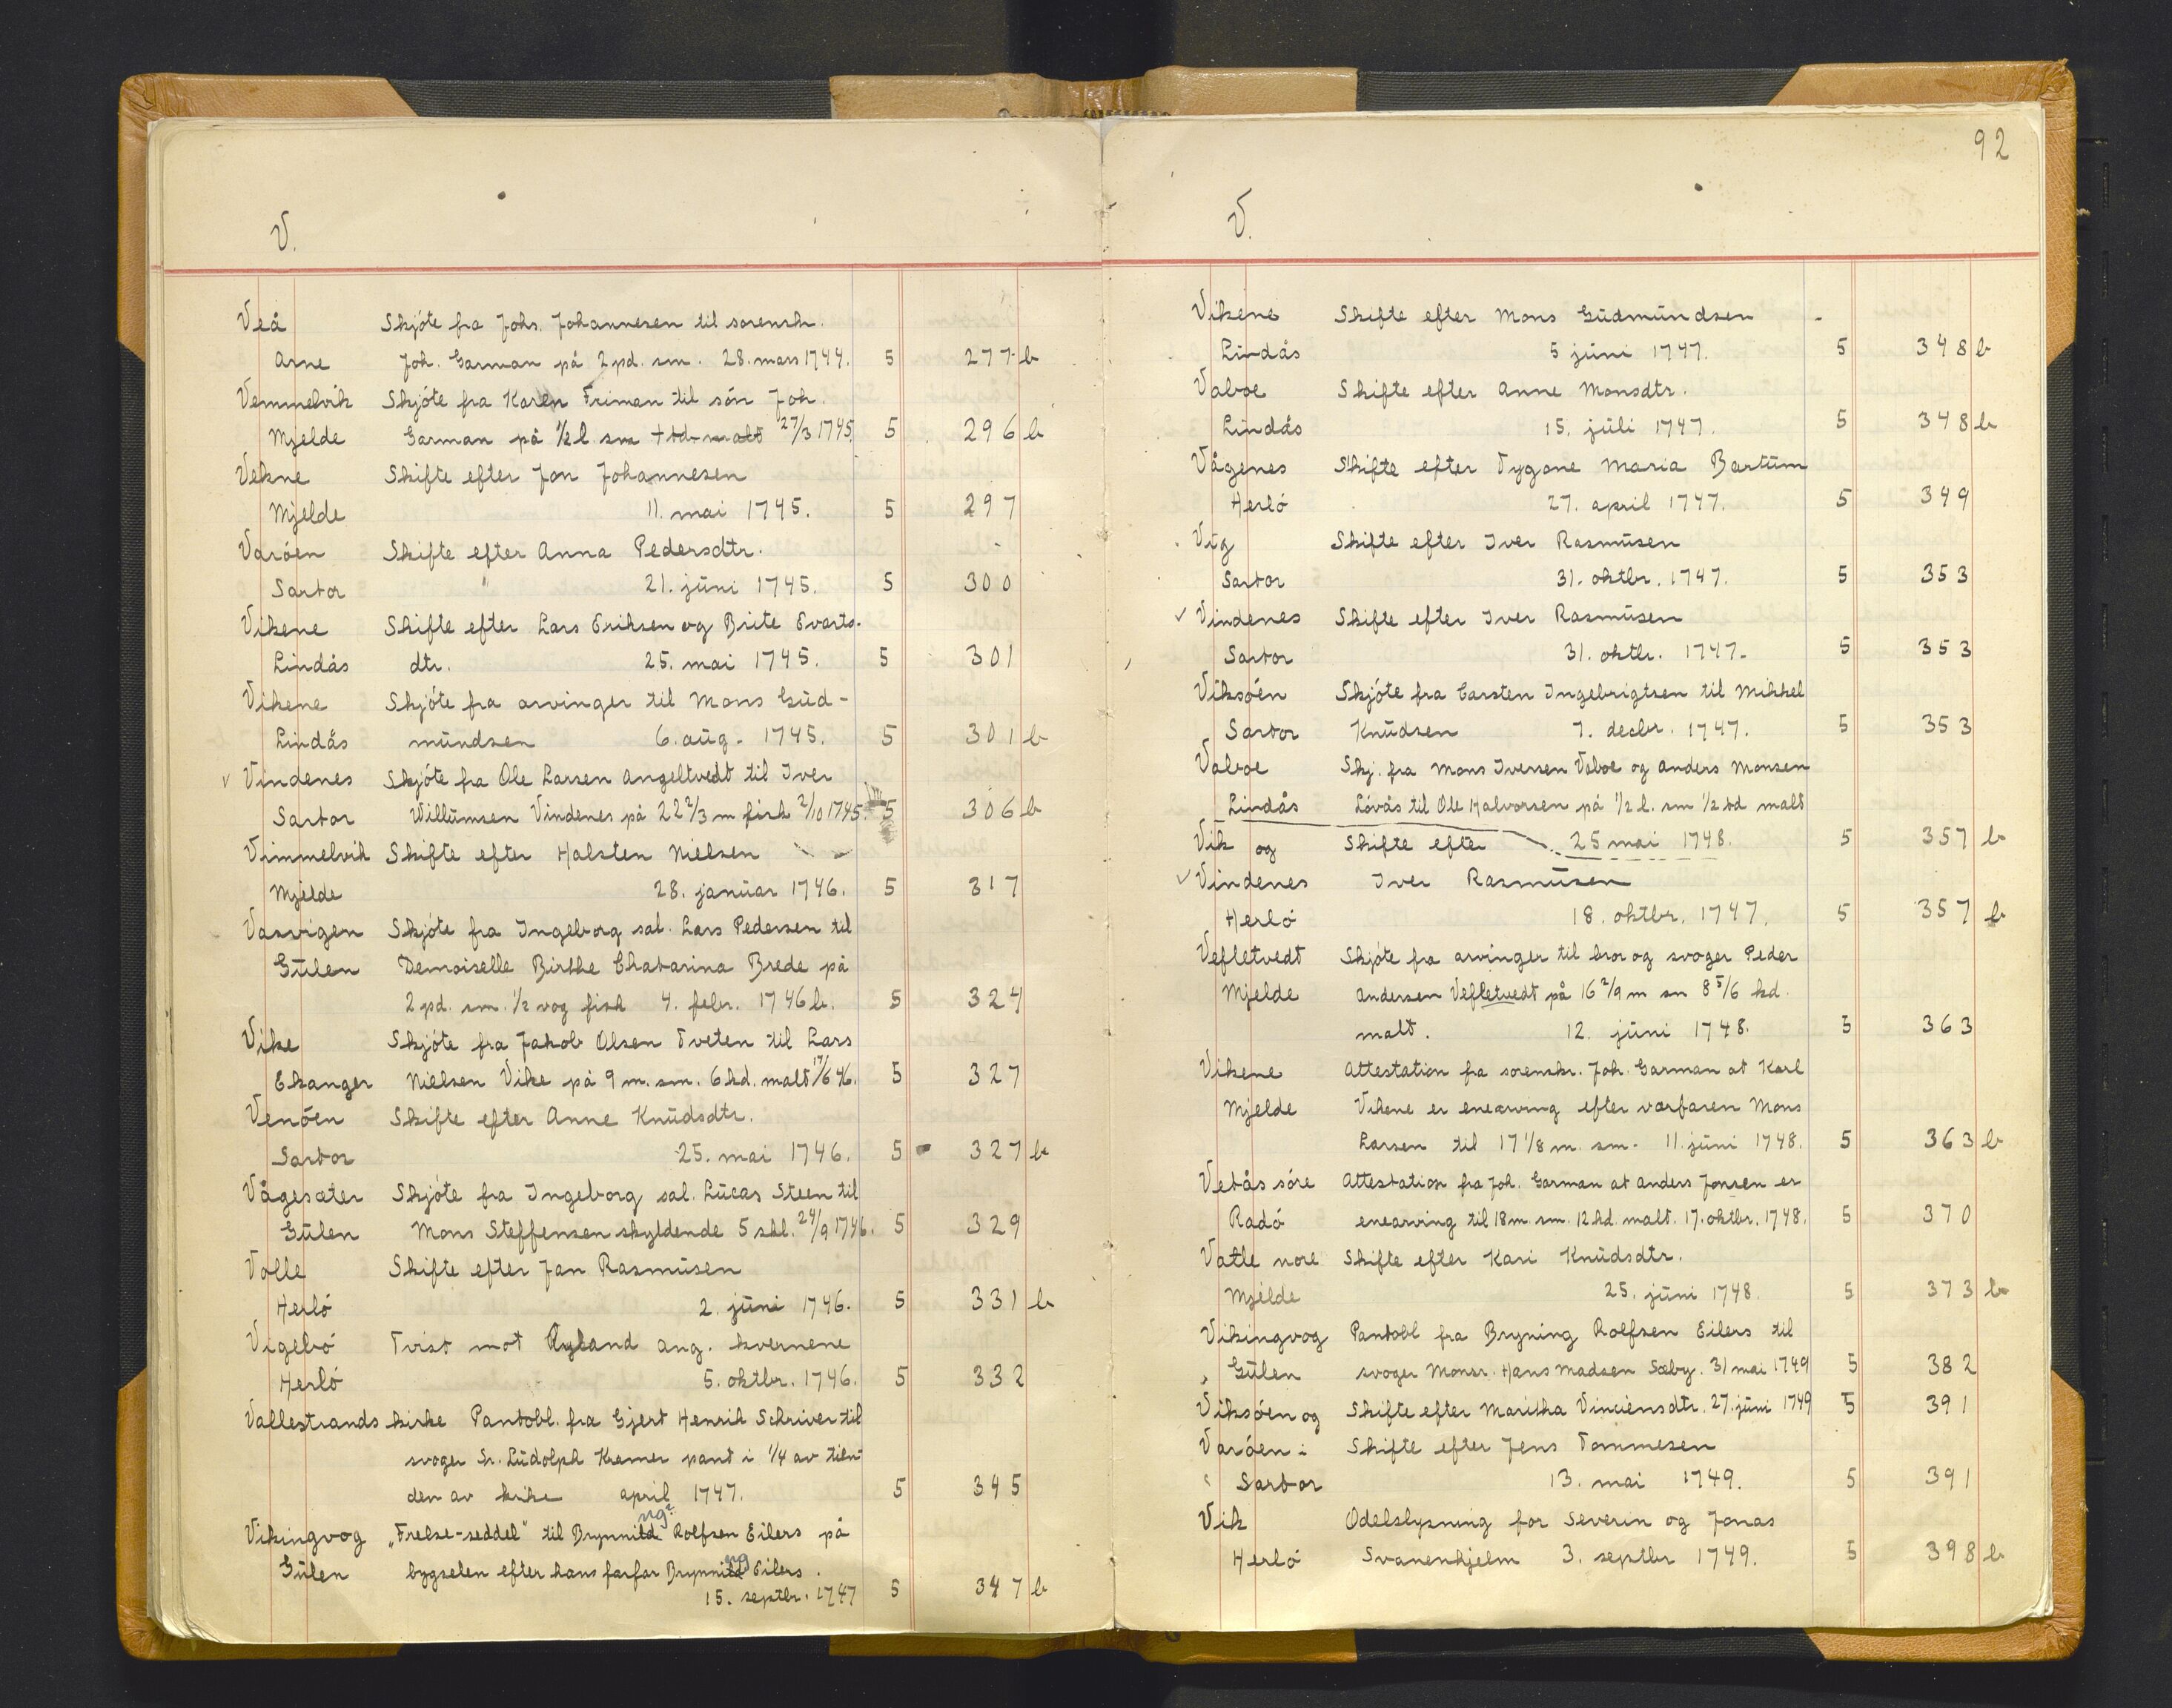 V.
Veå Skjóte fra Johs. Johannesen til sorenskr.
Arne Joh. Garman på 2 pd. sm. 28. mars 1744. 5 277 b
Vemmelvik Skjóte fra Karen Friman til són Joh.
Mjelde Garman på 1/2 l. sm + td malt 27/3 1745. 5 296 b
Vekne Skifte efter Jon Johannesen
Mjelde 11. mai 1745. 5 297
Varóen Skifte efter Anna Pedersdtr.
Sartor " 21. júni 1745. 5 300
Vikene Skifte efter Lars Eriksen og Brite Evarts-
Lindås dtr. 25. mai 1745. 5 301
Vikene Skjóte fra arvinger til Mons Gúd-
Lindås múndsen 6. aúg. 1745. 5 301 b
✓ Vindenes Skjóte fra Ole Larsen Angeltvedt til Iver
Sartor Willúmsen Vindenes på 22 2/3 m fisk 2/10 1745. 5 306 b
Vimmelvik Skifte efter Halsten Nielsen
Mjelde 28. janúar 1746. 5 317
Vasvigen Skjóte fra Ingeborg sal. Lars Pedersen til
Gúlen Demoiselle Birthe Chatarina Brede på
2 pd. sm. 1/2 vog fisk 4. febr. 1746 b. 5 324
Vike Skjóte fra Jakob Olsen Tveten til Lars
Ekanger Nielsen Vike på 9 m. sm. 6 kd. malt 17/6 46. 5 327
Venóen Skifte efter Anne Knúdsdtr.
Sartor 25. mai 1746. 5 327 b
Vågesæter Skjóte fra Ingeborg sal. Lúcas Steen til
Gúlen Mons Steffensen skyldende 5 skl. 24/9 1746. 5 329
Volle Skifte efter Jan Rasmúsen
Herló 2. júni 1746. 5 331 b
Vigebó Tvist mot Ryland ang. kvernene
Herló 5. oktbr. 1746. 5 332
Vallestrands kirke Pantobl. fra Gjert Henrik Schriver til
svoger Sr. Lúdolph Kramer pant i 1/4 av tien-
den av kirke april 1747. 5 345
Vikingvog „Frelse-seddel" til Brynnild Rolfsen Eilers på
Gúlen bygselen efter hans farfar Brynnild Eilers.
15. septbr. 1747 5 347 b
92
V.
Vikene Skifte efter Mons Gúdmúndsen
Lindås 5 júni 1747. 5 348 b
Vaboe Skifte efter Anne Monsdtr.
Lindås 15. júli 1747. 5 348 b
Vågenes Skifte efter Tygone Maria Bartúm
Herló 27. april 1747. 5 349
Vig Skifte efter Iver Rasmúsen
Sartor 31. oktbr. 1747. 5 353
✓ Vindenes Skifte efter Iver Rasmúsen
Sartor 31. oktbr. 1747. 5 353
Viksóen Skjóte fra Carsten Ingebrigtsen til Mikkel
Sartor Knúdsen 7. decbr. 1747. 5 353
Vaboe Skj. fra Mons Iversen Vaboe og Anders Monsen
Lindås Lóvås til Ole Halvorsen på 1/2 l. sm 1/2 td malt
Vik og Skifte efter 25 mai 1748. 5 357 b
✓ Vindenes Iver Rasmúsen
Herló 18. oktbr. 1747. 5 357 b
Vefletvedt Skjóte fra arvinger til bror og svoger Peder
Mjelde Andersen Vefletvedt på 16 2/9 m sm 8 5/6 kd.
malt. 12. júni 1748. 5 363
Vikene Attestation fra sorenskr. Joh. Garman at Karl
Mjelde Vikene er enearving efter varfaren Mons
Larsen til 17 1/8 m. sm. 11. júni 1748. 5 363 b
Vetås sóre Attestation fra Joh. Garman at Anders Jonsen er
Radó enearving til 18 m. sm. 12 kd. malt. 17. oktbr. 1748. 5 370
Vatle nore Skifte efter Kari Knúdsdtr.
Mjelde 25. júni 1748. 5 373 b
Vikingvog Pantobl fra Bryning Rolfsen Eilers til
Gúlen svoger Monsr. Hans Madsen Sæby. 31 mai 1749 5 382
Viksóen og Skifte efter Maritha Vinciensdtr. 27. júni 1749 5 391
Varóen i Skifte efter Jens Tommesen
Sartor 13. mai 1749. 5 391
Vik Odelslysning for Severin og Jonas
Herló Svanenhjelm 3. septbr 1749. 5 398 b